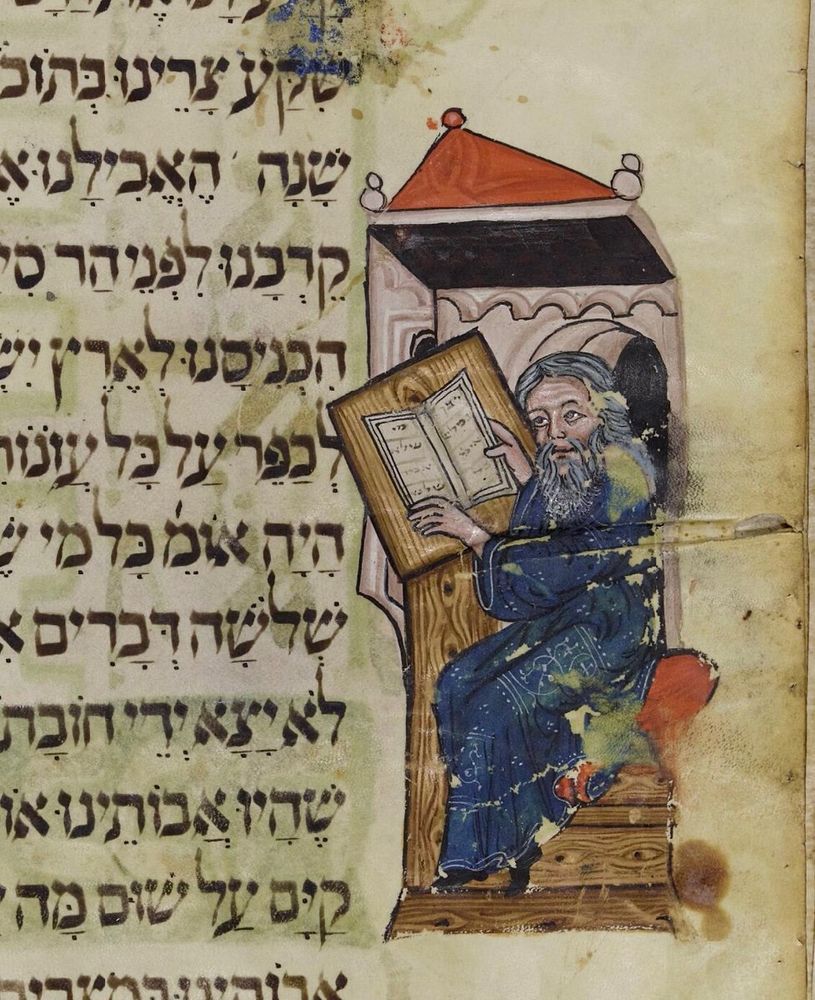 שִׁקַּע צָרֵינוּ בְּתוֹכ
שָׁנָה הֶאֱכִילָנוּ אֶ
קֵרְבָנוּ לִפְנֵי הַר סִי
הִכְנִיסָנוּ לְאֶרֶץ יִשְׂ
לְכַפֵּר עַל כָּל עֲוֹנוֹת
הָיָה אוֹמֵ כָּל מִי שֶׁ
שְׁלֹשָׁה דְּבָרִים אֵ
לֹא יָצָא יְדֵי חוֹבָת
שֶׁהָיוּ אֲבוֹתֵינוּ או
קַיָּם עַל שׁוּם מָה
אבותינו במצרי